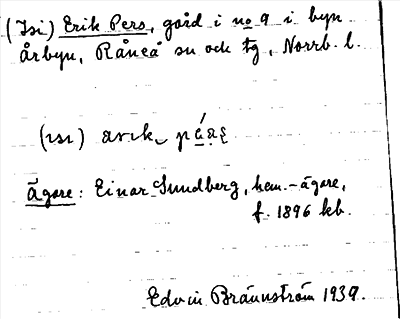 (Isi) Erik Pers, gård i no 9 i byn
årbyn, Råneå sn och tg, Norrb. l.
(ısı)
Ägare: Einar Sundberg, hem.-ägare,
f. 1896 kb.
Edvin Brännström 1939.